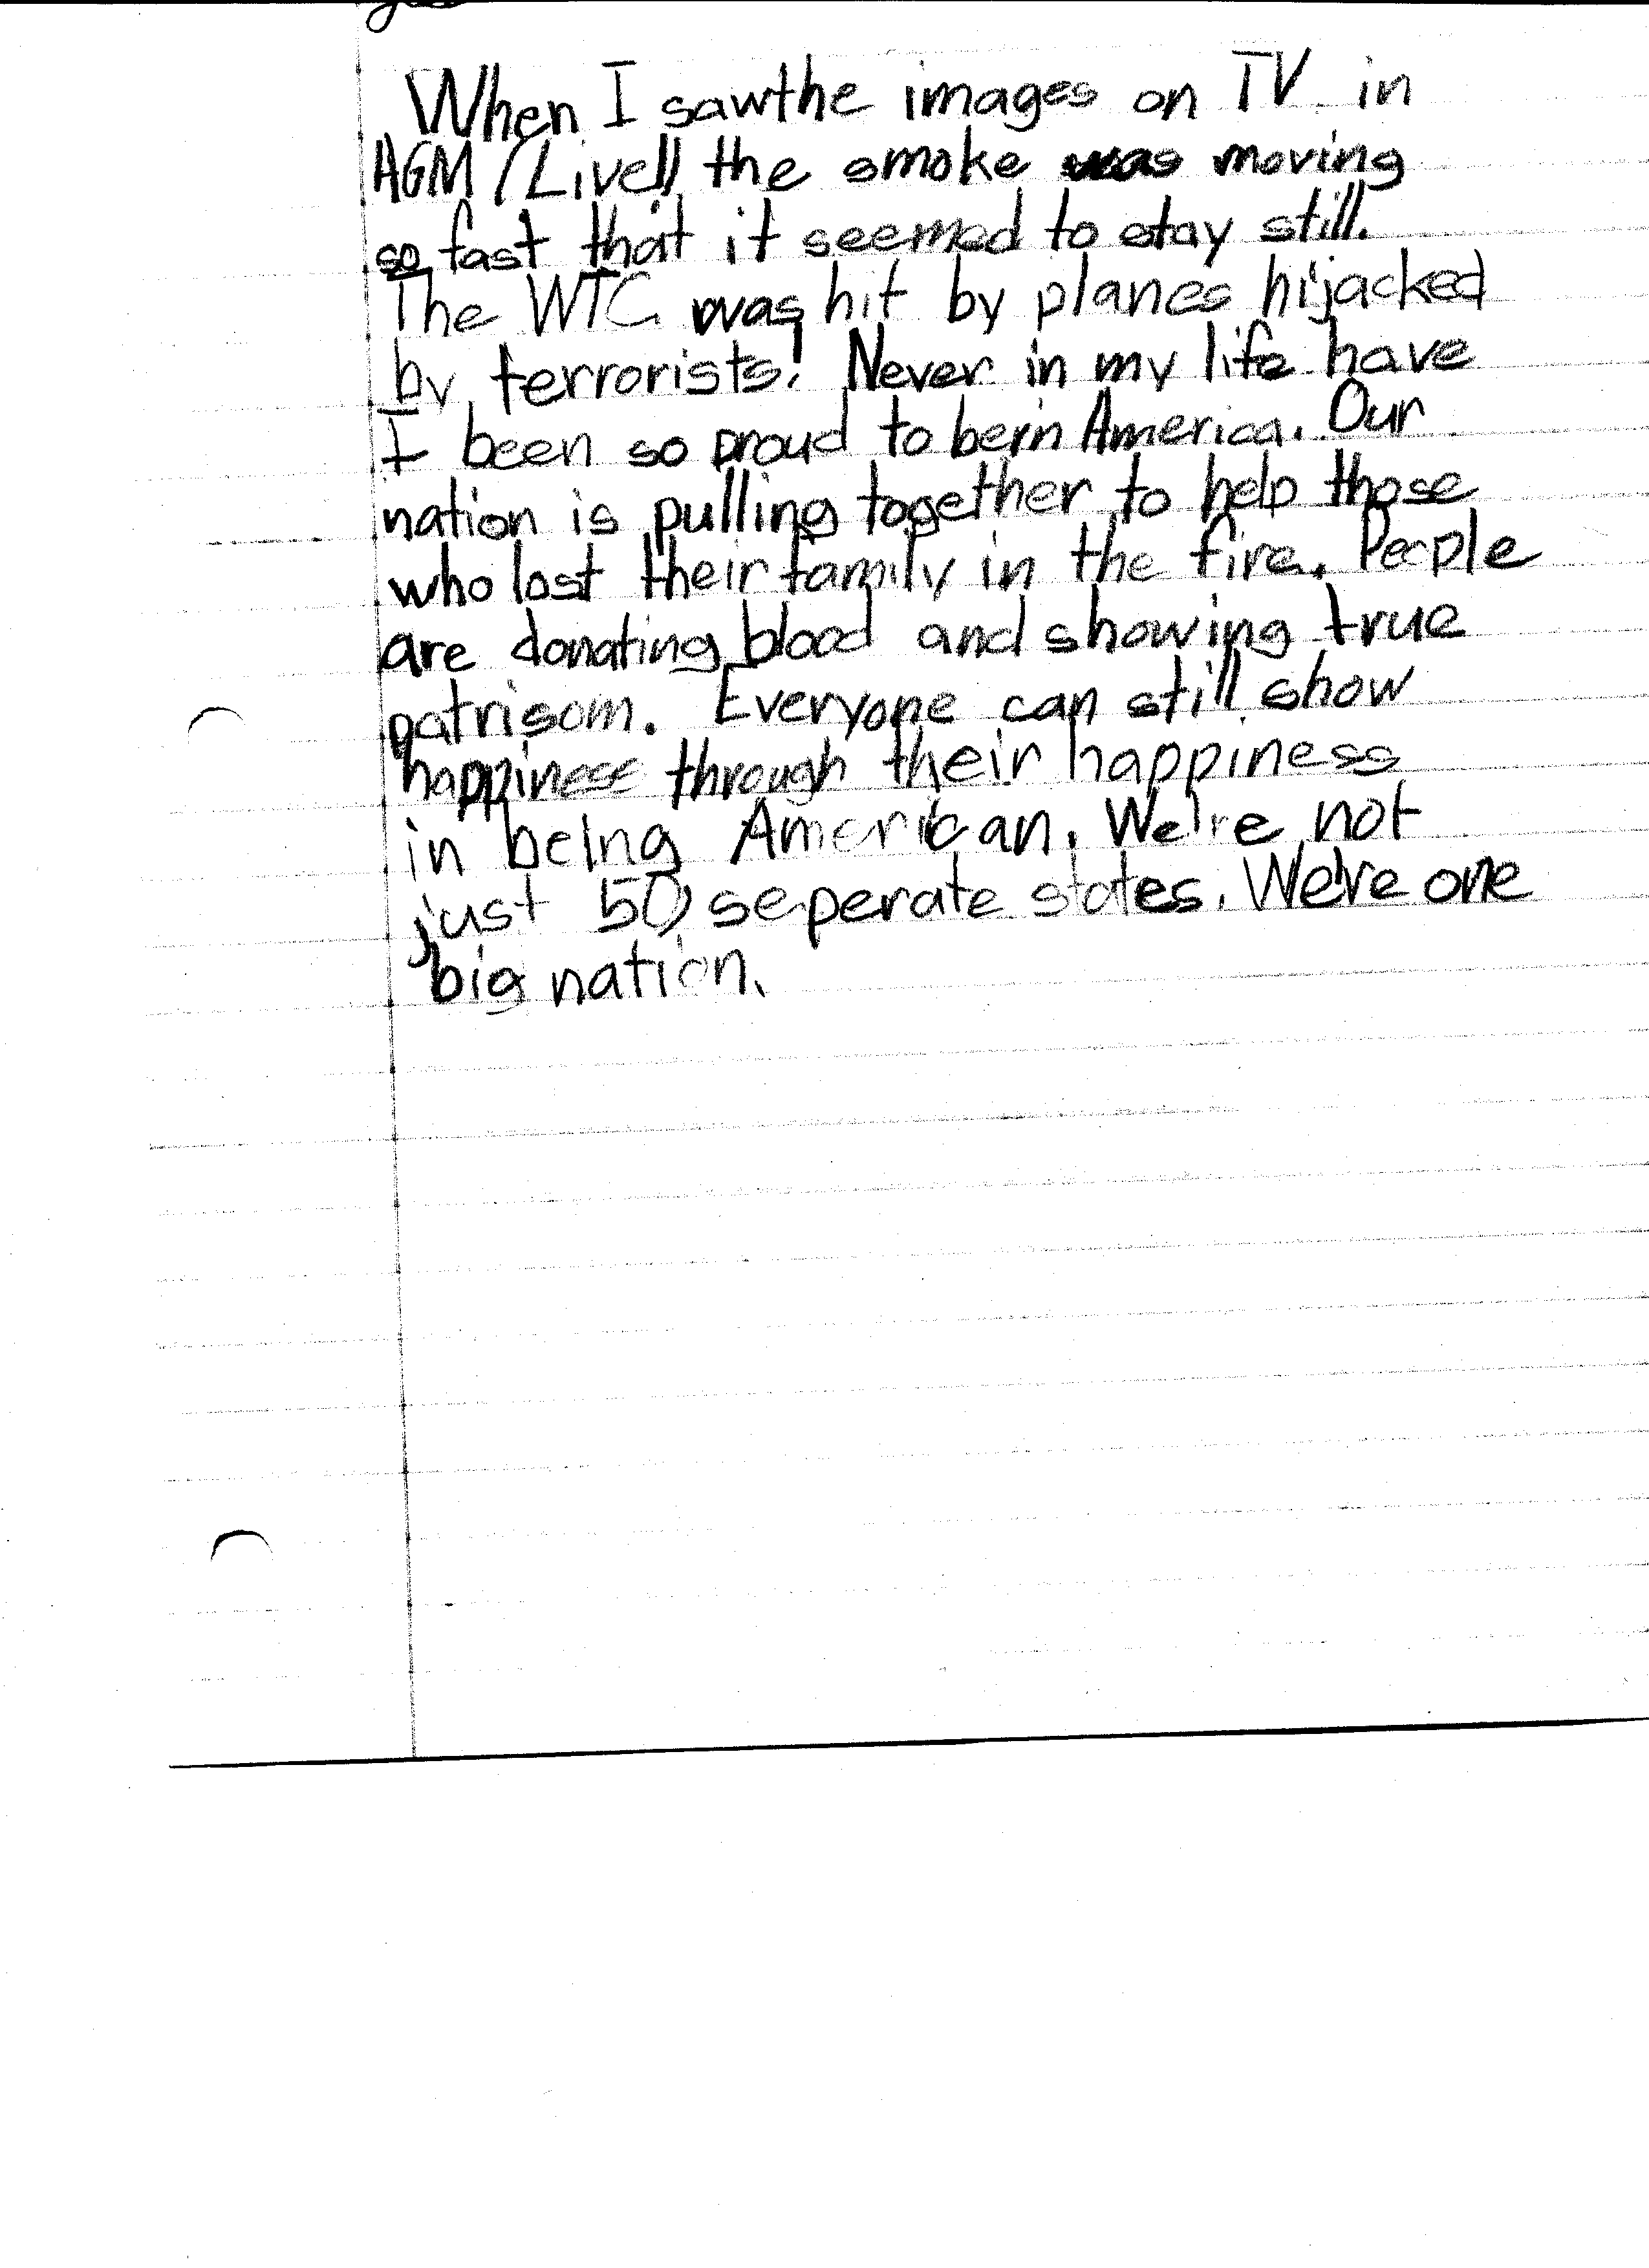 When I sawthe images on TV in
AGM (Live!) the smoke was moving
so fast that it seemed to stay still.
The WTC was hit by planes hijacked
by terrorists! Never in my life have
I been so proud to be in America. Our
nation is pulling together to help those
who lost their family in the fire. People
are donating blood and showing true
patrisom. Everyone can still show
happiness through their happiness
in being American. We're not
just 50 seperate states. We're one
big nation.